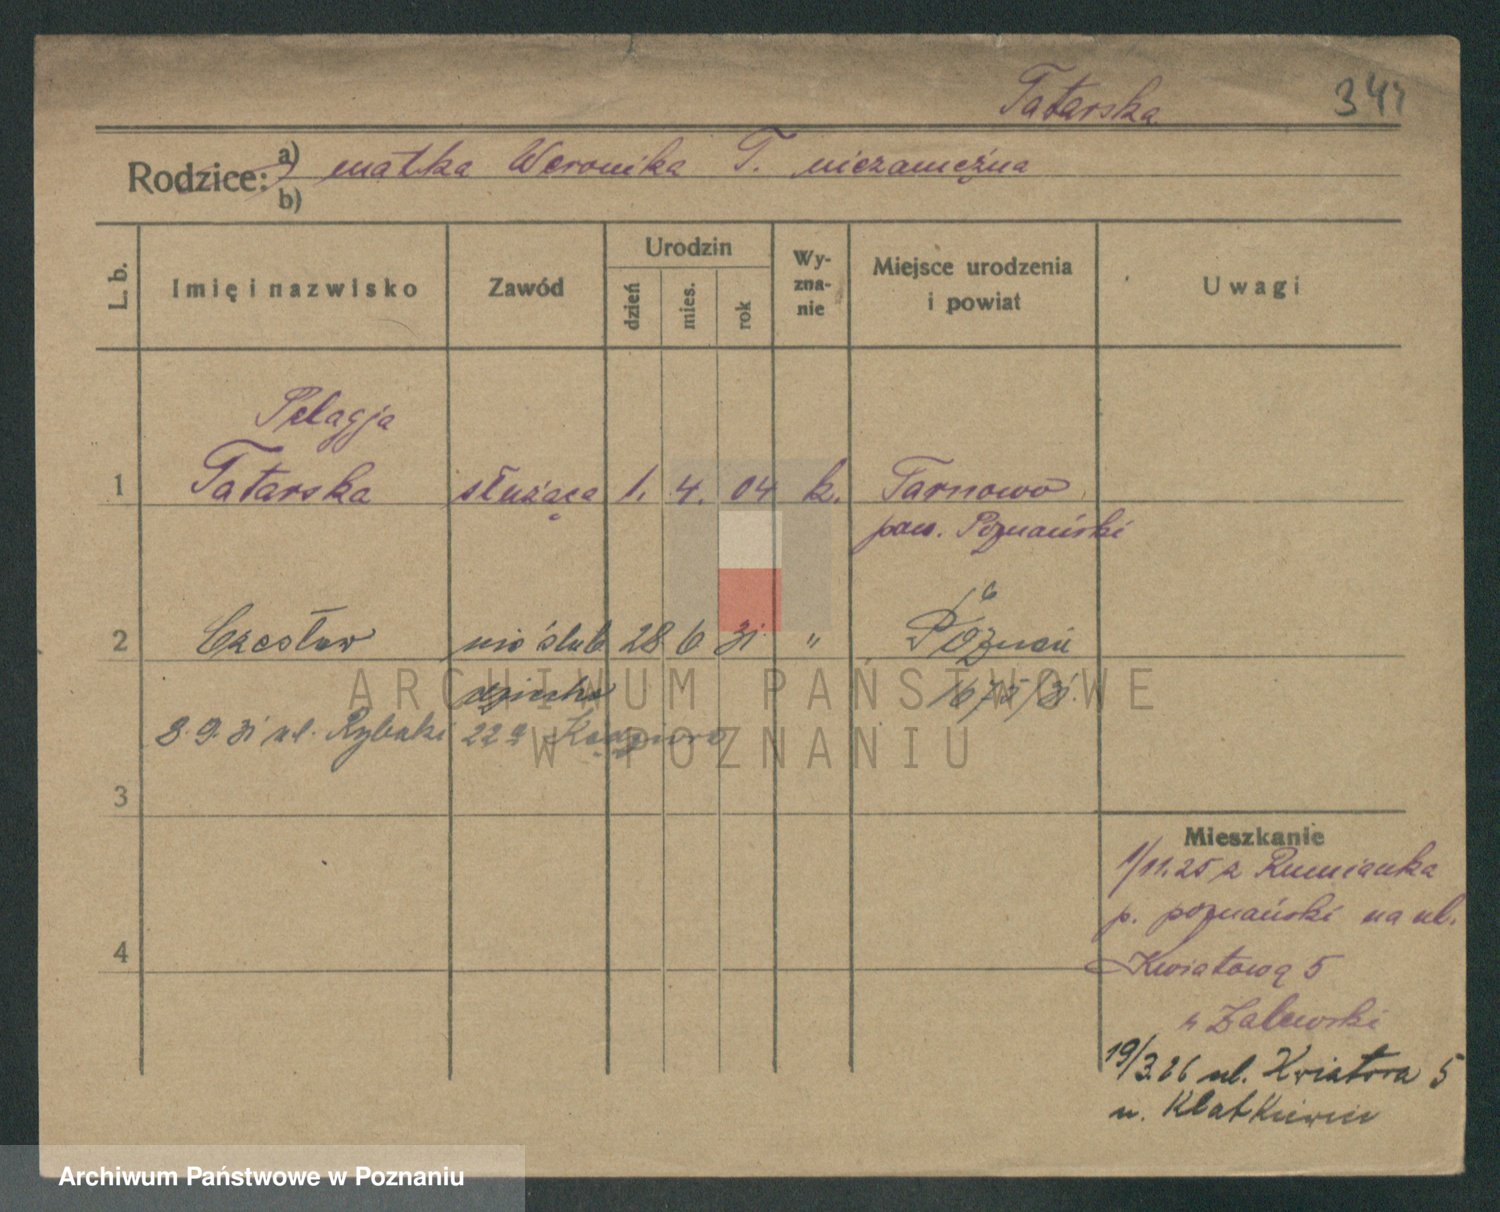 Tatarska 344
Rodzice: a) matka Weronika T. niezamężna
b)
L. b. Imię i nazwisko Zawód Urodzin dzień mies. rok Wyznanie Miejsce urodzenia i powiat Uwagi
Pelagja
1 Tatarska służąca 1. 4. 04 k. Tarnowo
pow. Poznański
2 Czesław nieślub 28 6 31 " Poznań
dziecko 1675/31.
8.9.31 ul. Rybaki 22a
3
4
Mieszkanie
1/11.25 z Rumianka
p. poznański na ul.
Kwiatową 5
u Zalewski
19/3.26 ul. Kwiatowa 5
u.
ARCHIWUM PAŃSTWOWE
W POZNANIU
Archiwum Państwowe w Poznaniu